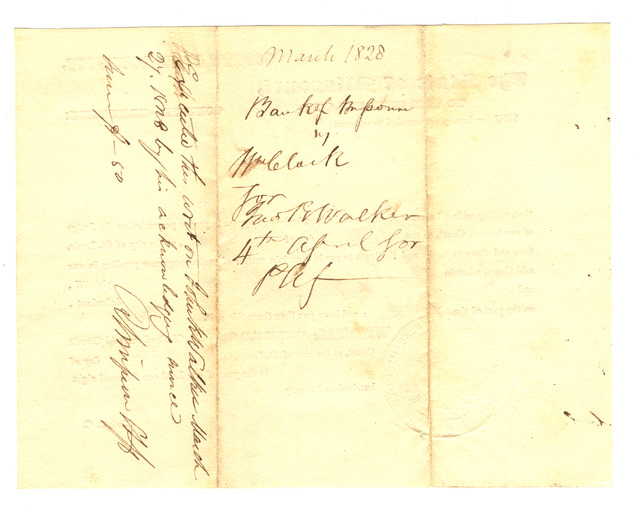 March 1828
Bank of Missouri
vs
Wm Clark
for
Jno K Walker
4th April for
Plff
Executed this writ on John K Walker March
27. 1828 by his acknowledging service
Simpson Shff
50